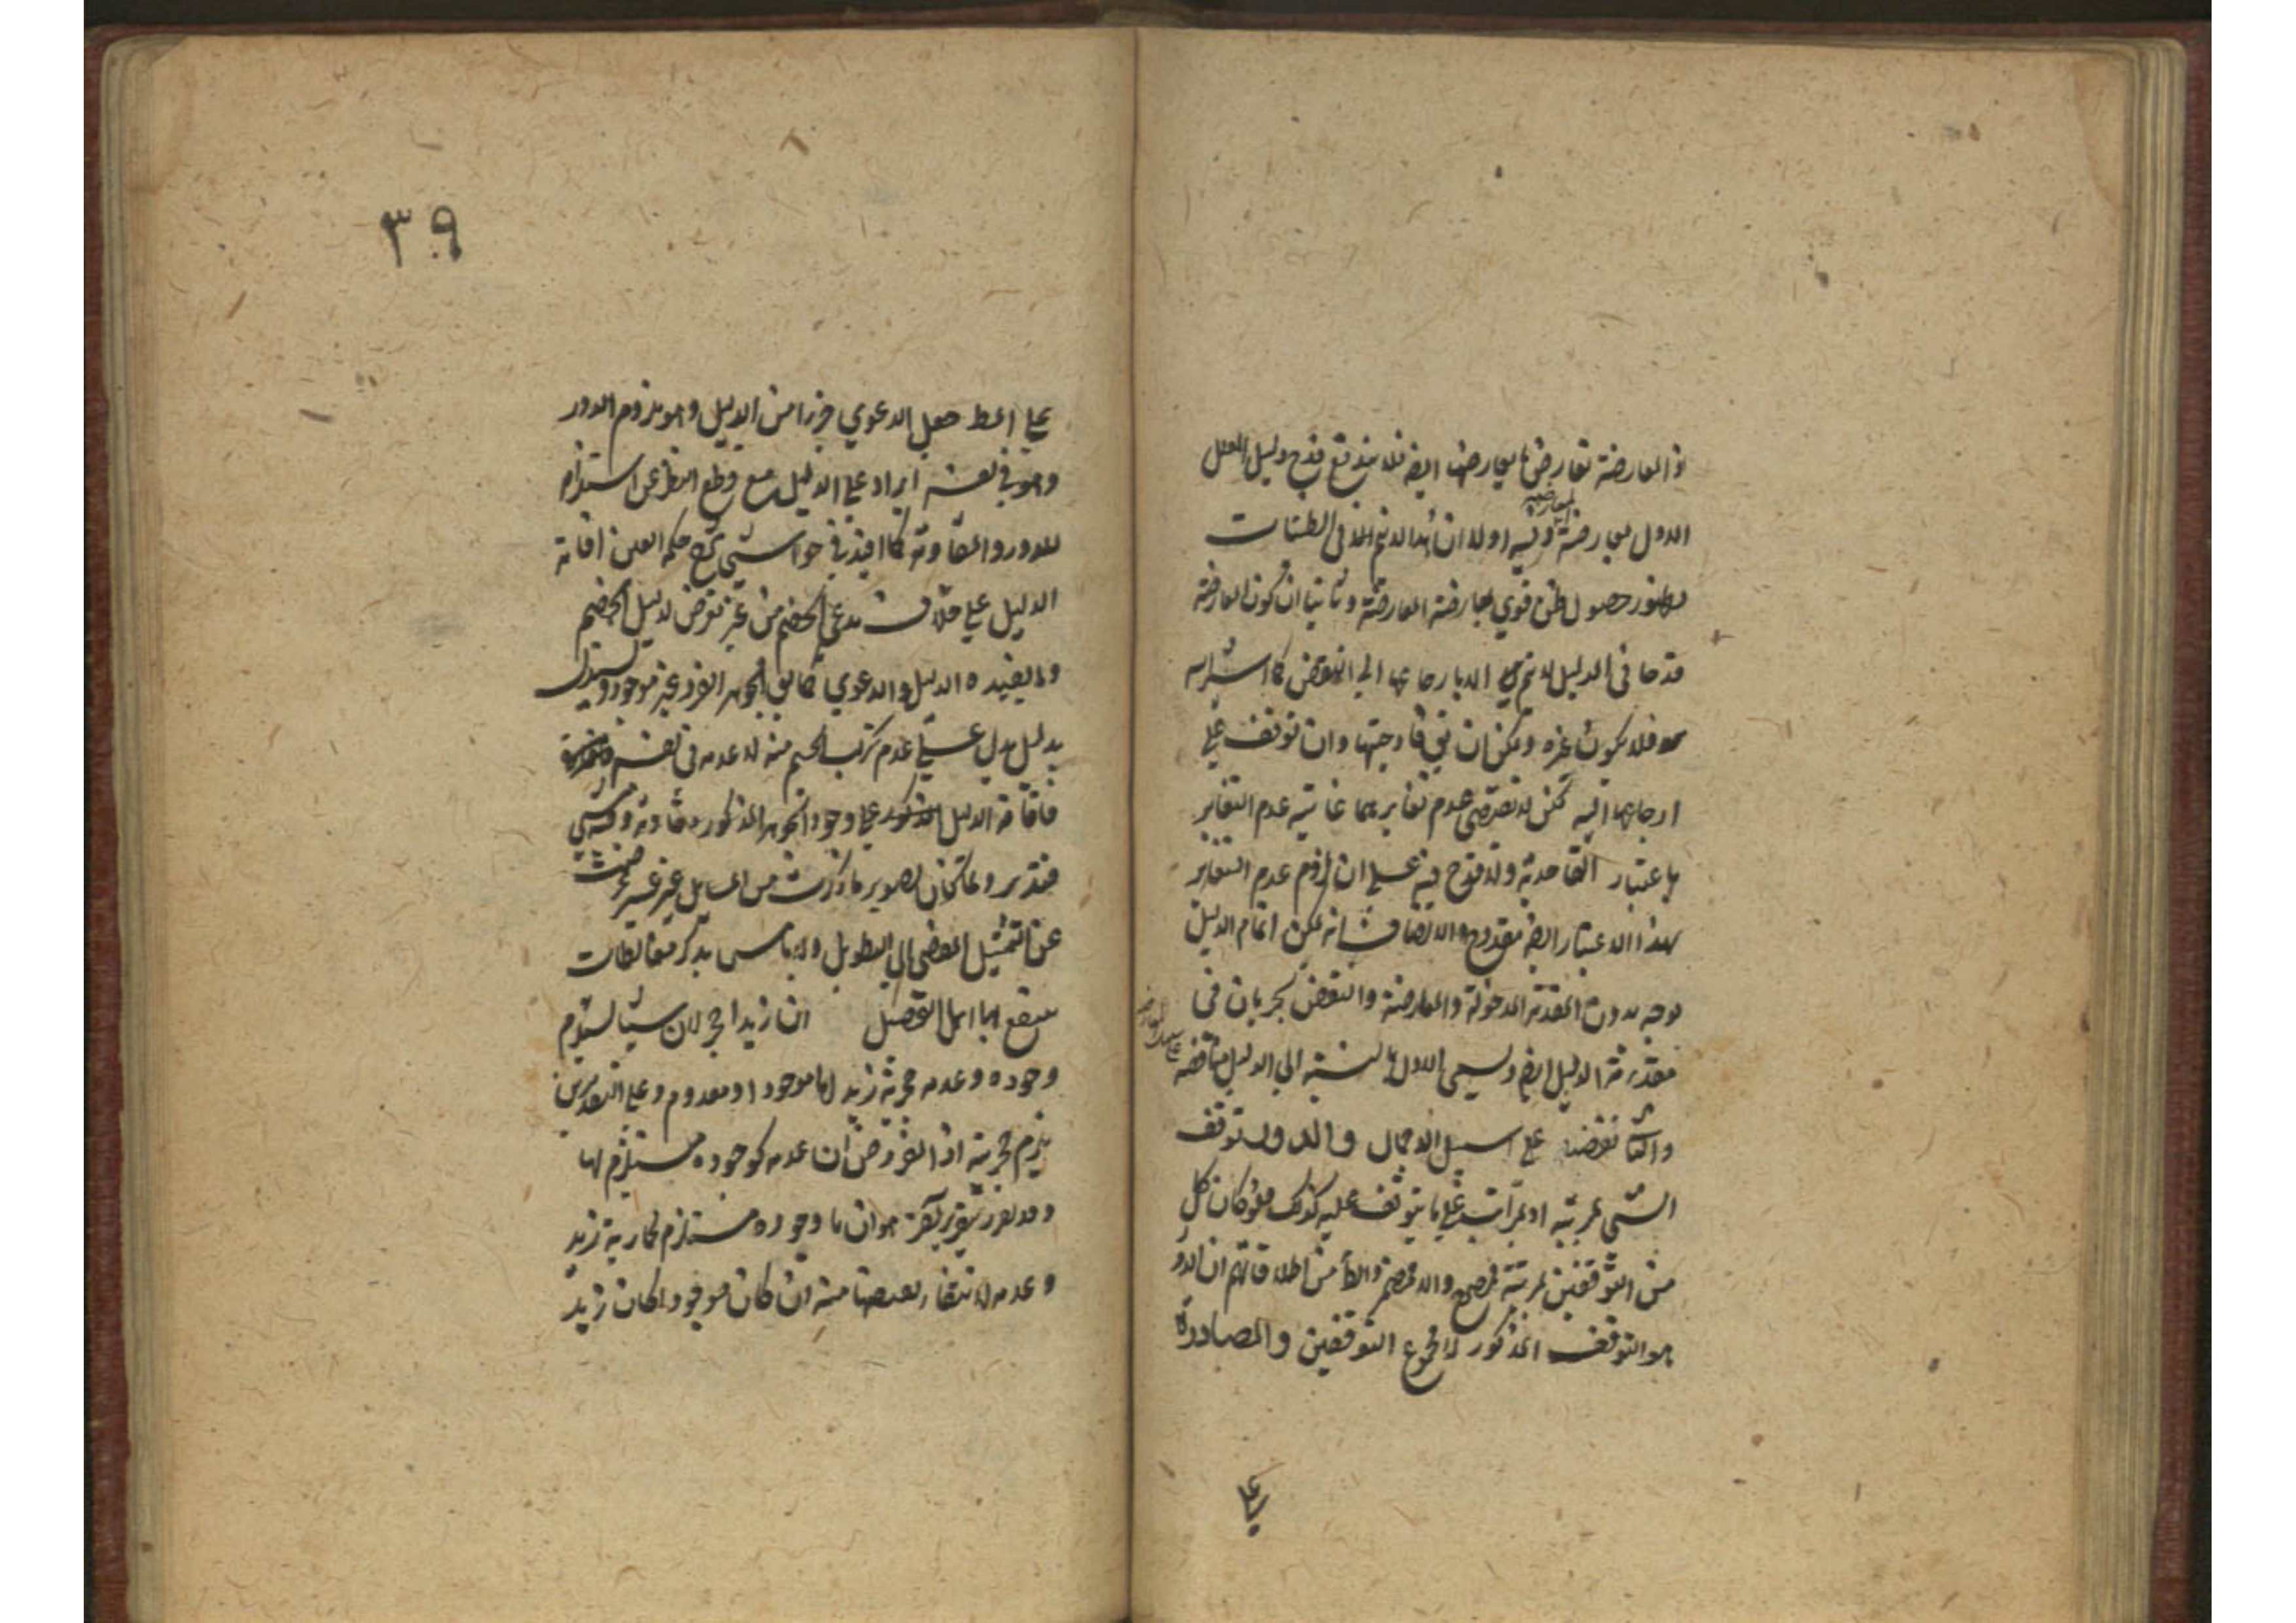 اذ المعارضة تعارض بما يعارضها ايضا فلا يندفع قدح دليل المعلل
الاول بمعارضة وفيه اولا ان هذا لا يتم الا في الظنيات
حصول ظن قوي بمعارضة المعارضة وثانيا ان كون المعارضة
قدحا في الدليل لا يتم الا بارجاعها الى النقض كما اشير اليه
فلا يكون غيره ويمكن ان في قادحيتها وان توقف على
ارجاعها اليه لكن لا تقتضي عدم تغايرهما غايته عدم التغاير
باعتبار القادحية ولا قدح فيه على ان لزوم عدم التغاير
بهذا الاعتبار ايضا مقدوح والانصاف انه يمكن اتمام الدليل
بوجه بدون المقدمة المدخولة والمعارضة والنقض يجريان في
مقدمة الدليل ايضا ويسمى الاول بالنسبة الى الدليل مناقضة
والثاني نقضا على سبيل الاجمال والدور توقف
الشيء بمرتبة او بمراتب على ما يتوقف عليه كذلك فلو كان كل
من التوقفين بمرتبة فمصرح والا فمضمر والظاهر من اطلاقاتهم ان الدور
هو التوقف المذكور لا مجموع التوقفين والمصادرة
على
٣٩
على المط جعل الدعوي جزءا من الدليل وهو ملزوم الدور
وهو في نفسه ايراد على الدليل مع قطع النظر عن استلزامه
للدور والمقاومة كما افيد في حواشي شرح حكمة العين اقامة
الدليل على خلاف مدعي الخصم من غير تعرض لدليل الخصم
ولا يفيده الدليل والدعوي كما يق الجوهر الفرد غير موجود ويستدل
بدليل يدل على عدم تركب الجسم منه لا عدمه في نفسه
فاقامة الدليل على وجود الجوهر المذكور مقاومة وفيه شيء
فتدبر ولما كان تصوير ما ذكرت من المسايل غير عسير
عن التمثيل المفضي الى التطويل ولا باس بذكر مغالطات
ينتفع بها اهل التحصيل ان زيدا حجر لان شيئا يستلزم
وجوده وعدمه حجرية زيد اما موجود او معدوم وعلى التقديرين
يلزم حجريته اذ المفروض ان عدمه كوجوده مستلزم لها
وقد تقرر بتقرير آخر هو ان ما وجوده مستلزم لحمارية زيد
وعدمه لانتفاء بعضها منه ان كان موجودا كان زيد